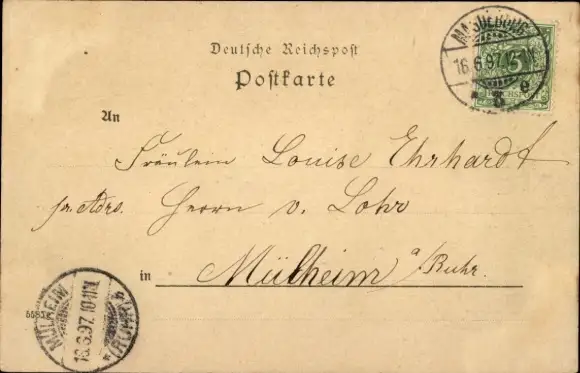 Deutsche Reichspost
Postkarte
MAGDEBURG
16.6.97.
5
An
Fräulein Louise Ehrhardt
pr. Adrs. Herrn v. Lohr
in Mülheim a/Ruhr.
MÜLHEIM
16.6.97. 10-11N
(RUHR)